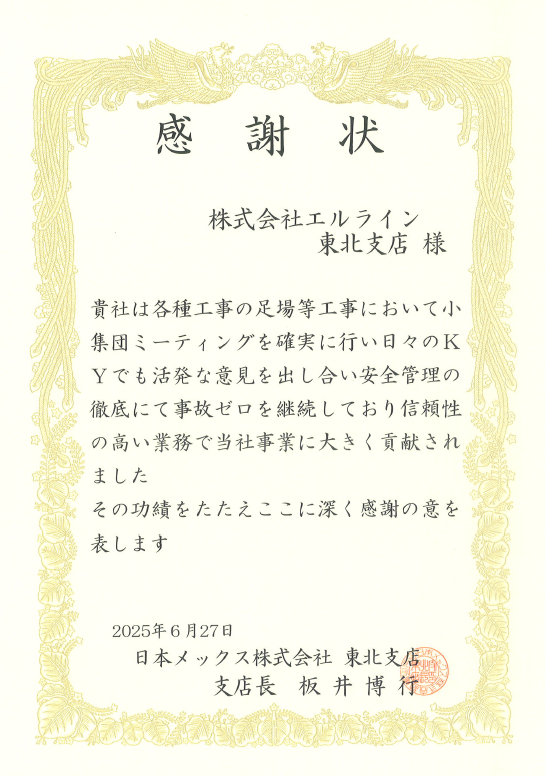 感謝状
株式会社エルライン
東北支店 様
貴社は各種工事の足場等工事において小
集団ミーティングを確実に行い日々のK
Yでも活発な意見を出し合い安全管理の
徹底にて事故ゼロを継続しており信頼性
の高い業務で当社事業に大きく貢献され
ました
その功績をたたえここに深く感謝の意を
表します
2025年6月27日
日本メックス株式会社 東北支店
支店長 板井博行